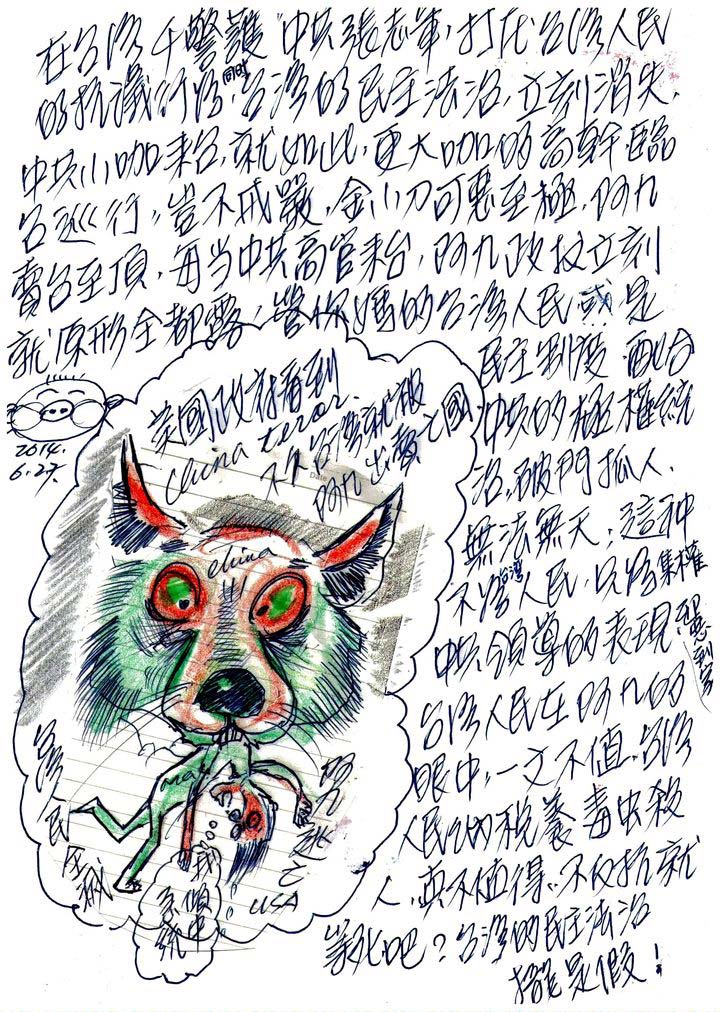 在台灣千警護"中共張志軍"打在台灣人民
的抗議行為,同時台灣的民主法治,立刻消失,
中共小咖來台,就如此,更大咖的高幹臨
台巡行,豈不戒嚴,金小刀可惡至極,阿九
賣台至頂,每當中共高官來台,阿九政权立刻
就原形全都露,管你媽的台灣人民或是
民主制度 配合
中共的極權統
治,破門抓人,
無法無天,這種
不灣台灣人民,只為集權
中共領導的表現
台灣人民在阿九的
眼中,一文不值,台灣
人民納稅養毒虫殺
人,真不值得,不反抗就
等死吧?台灣的民主法治
攏是假!
2014.
6.27.
美國政府看到
China terror.
不久台灣就被
阿九出賣之國
china
!!!
ma
台灣
民
我
傾中
系統
USA